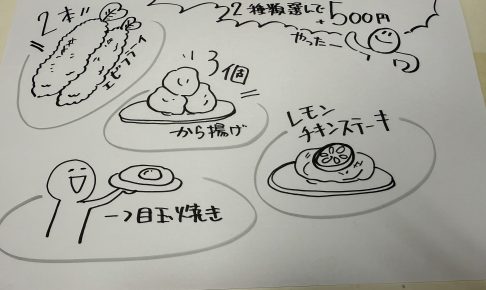 2種類選んで
+500円
やったー
2本
エビフライ
3個
から揚げ
レモン
チキンステーキ
一つ目玉焼き